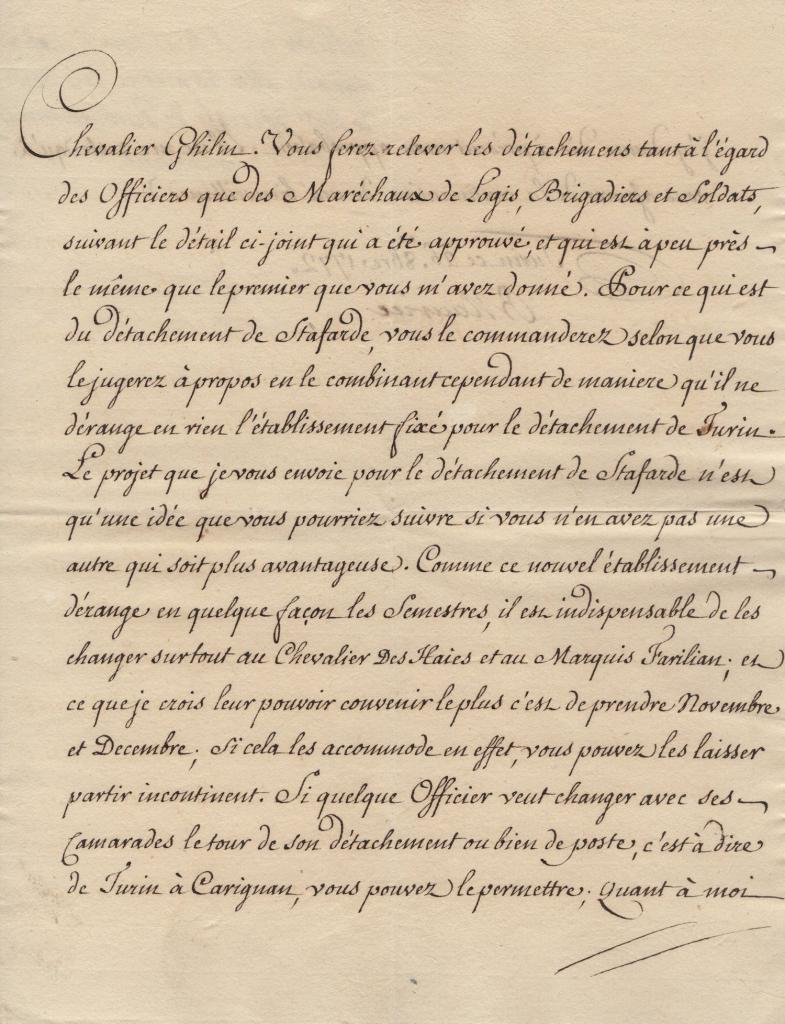 Chevalier Ghilin. Vous ferez relever les détachemens tant à l'égard
des Officiers que des Maréchaux de Logis, Brigadiers et Soldats,
suivant le détail ci-joint qui a été approuvé, et qui est à peu près
le même que le premier que vous m'avez donné. Pour ce qui est
du détachement de Stafarde, vous le commanderez selon que vous
le jugerez à propos en le combinant cependant de maniere qu'il ne
dérange en rien l'établissement fixé pour le détachement de Turin.
Le projet que je vous envoie pour le détachement de Stafarde n'est
qu'une idée que vous pourriez suivre si vous n'en avez pas une
autre qui soit plus avantageuse. Comme ce nouvel établissement
dérange en quelque façon les Semestres, il est indispensable de les
changer surtout au Chevalier Des Haies et au Marquis Farilian; et
ce que je crois leur pouvoir convenir le plus c'est de prendre Novembre
et Decembre; Si cela les accommode en effet, vous pouvez les laisser
partir incontinent. Si quelque Officier veut changer avec ses
Camarades le tour de son détachement ou bien de poste, c'est à dire
de Turin à Carignan, vous pouvez le permettre; Quant à moi